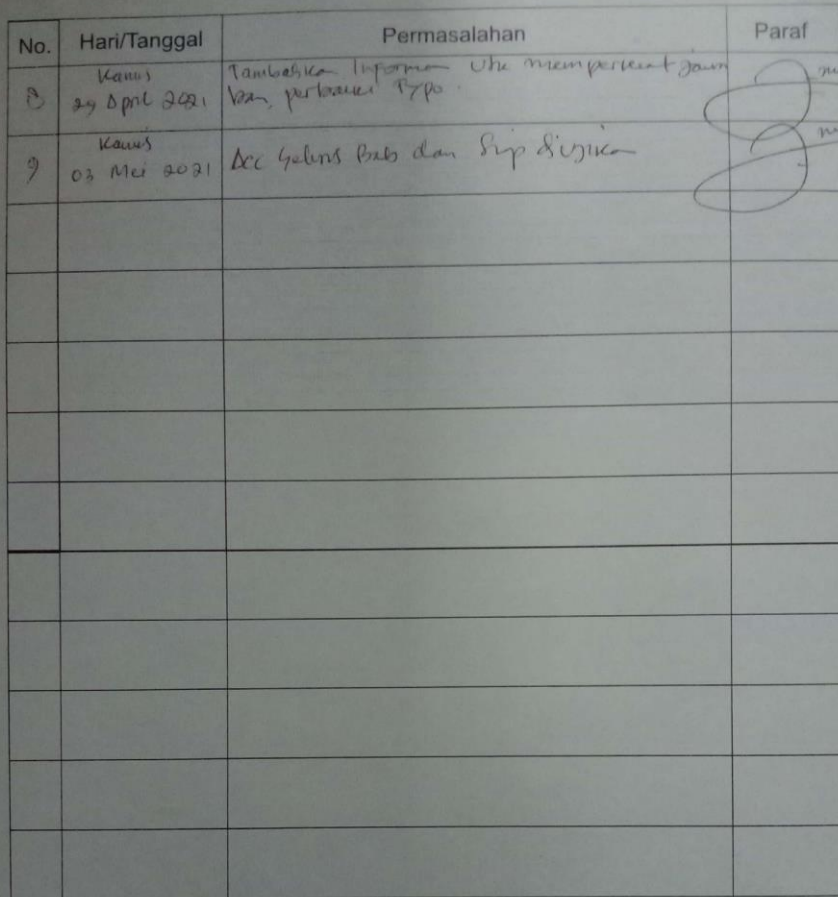 No. Hari/Tanggal Permasalahan Paraf
8 Kamis 29 April 2021 Tambahkan Informan utk memperkuat jawa
ban, perbaiki Typo.
9 Kamis 03 Mei 2021 Acc Seluruh Bab dan Siap diujikan